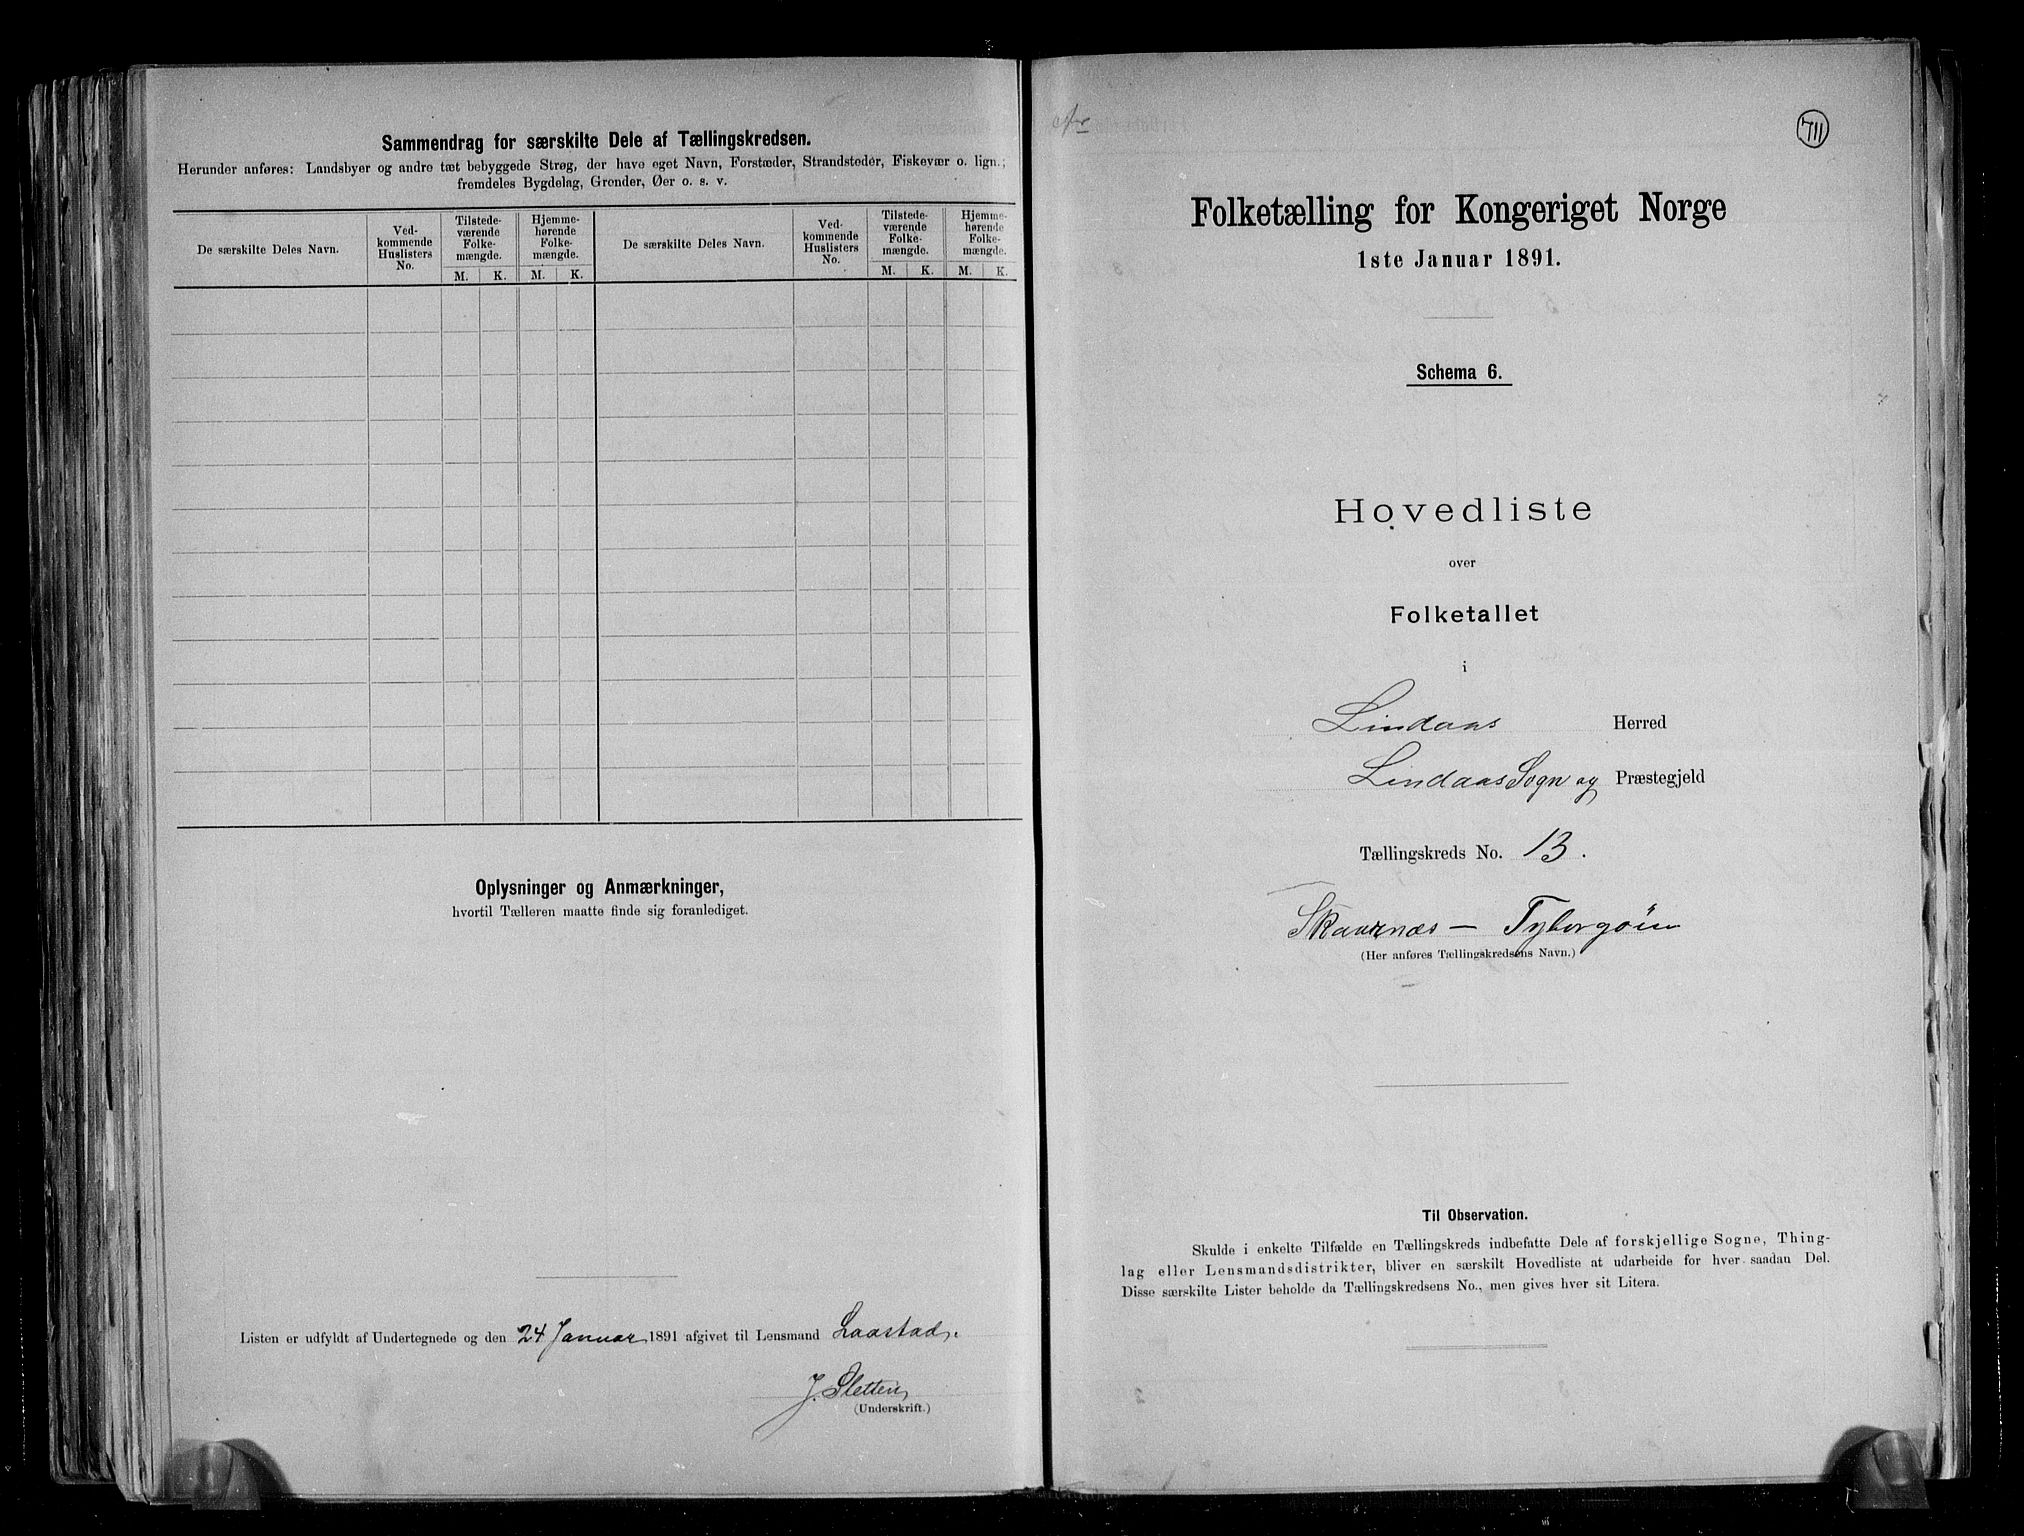 Sammendrag for særskilte Dele af Tællingskredsen.
Herunder anføres: Landsbyer og andre tæt bebyggede Strøg, der have eget Navn, Forstæder, Strandsteder, Fiskevær o. lign.;
fremdeles Bygdelag, Grender, Øer o. s. v.
De særskilte Deles Navn.
Ved-
kommende
Huslisters
No.
Tilstede-
værende
Folke-
mængde.
M. K.
Hjemme-
hørende
Folke-
mængde.
M. K.
De særskilte Deles Navn.
Ved-
kommende
Huslisters
No.
Tilstede-
værende
Folke-
mængde.
M. K.
Hjemme-
hørende
Folke-
mængde.
M. K.
Oplysninger og Anmærkninger,
hvortil Tælleren maatte finde sig foranlediget.
Listen er udfyldt af Undertegnede og den 24 Januar 1891 afgivet til Lensmand Laastad.
J. Sletten
(Underskrift.)
711
Folketælling for Kongeriget Norge
1ste Januar 1891.
Schema 6.
Hovedliste
over
Folketallet
i
Lindaas Herred
Lindaas Sogn og Præstegjeld
Tællingskreds No. 13.
Skaurnæs — Tyborgöin
(Her anføres Tællingskredsens Navn.)
Til Observation.
Skulde i enkelte Tilfælde en Tællingskreds indbefatte Dele af forskjellige Sogne, Thing-
lag eller Lensmandsdistrikter, bliver en særskilt Hovedliste at udarbeide for hver saadan Del.
Disse særskilte Lister beholde da Tællingskredsens No., men gives hver sit Litera.